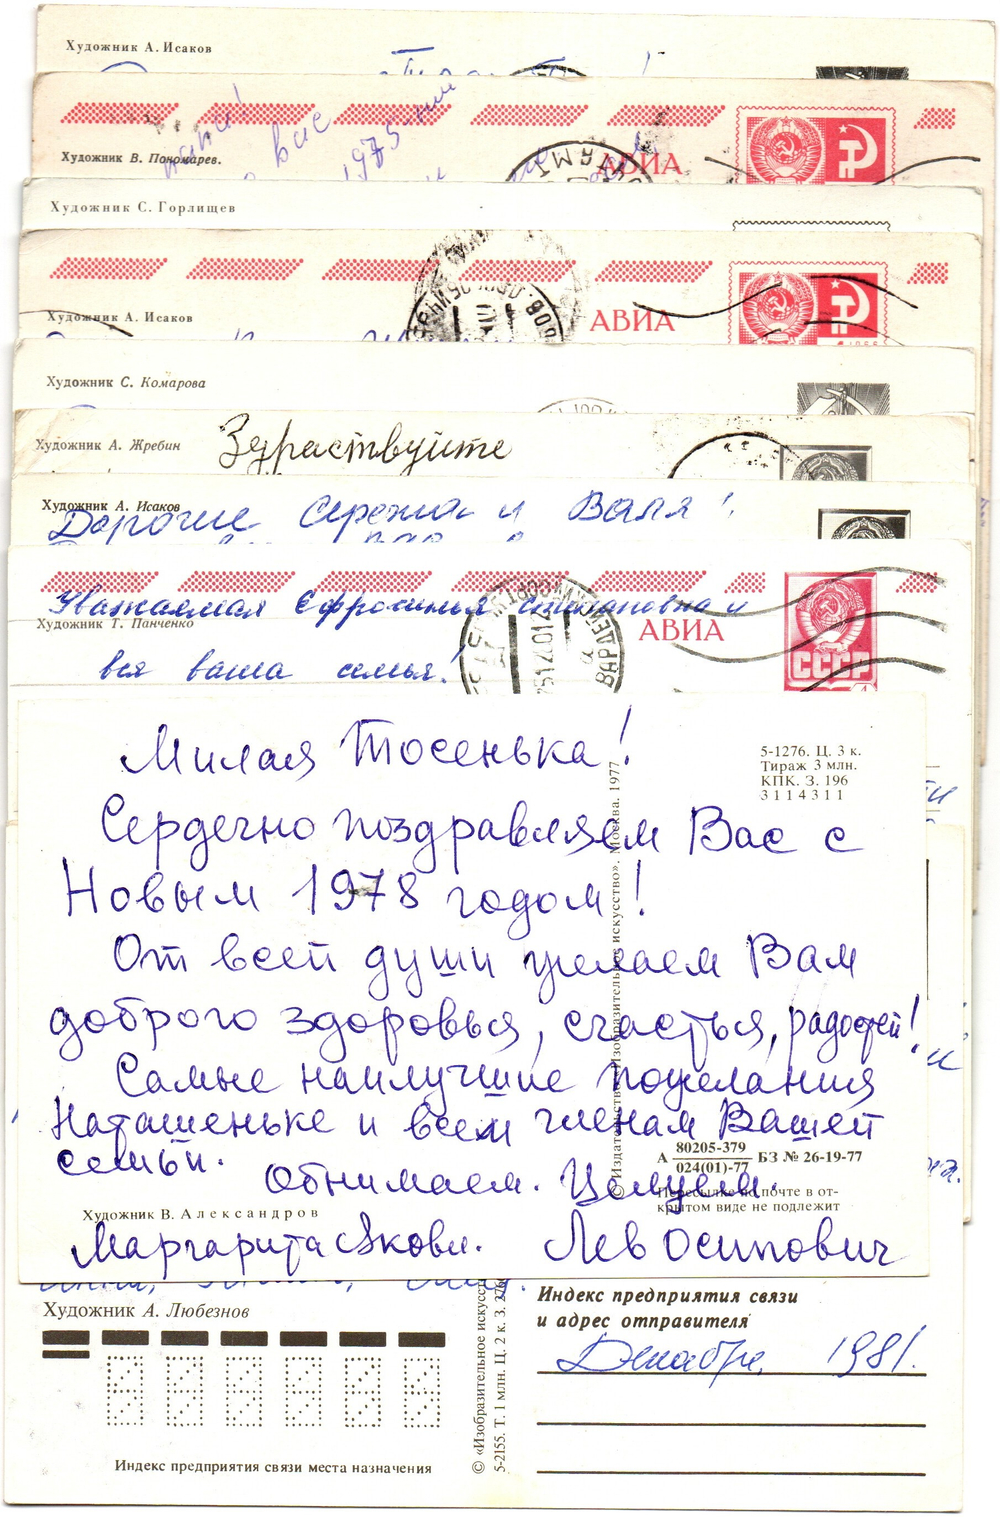 Художник А. Исаков
Художник В. Пономарев.
Вас
1975
АВИА
Художник С. Горлищев
Художник А. Исаков
АВИА
Художник С. Комарова
Художник А. Жребин
Здраствуйте
Художник А. Исаков
Дорогие Сережа и Валя!
Уважаемая Ефросинья Степановна и
Художник Т. Панченко
АВИА
вся ваша семья!
СССР
Милая Тосенька!
5-1276. Ц. 3 к.
Тираж 3 млн.
КПК. З. 196
3114311
Сердечно поздравляем Вас с
Новым 1978 годом!
От всей души желаем Вам
доброго здоровья, счастья, радостей!
Самые наилучшие пожелания
Наташеньке и всем членам Вашей
семьи.
Обнимаем. Целуем.
© Издательство «Изобразительное искусство». Москва. 1977
А 80205-379
024(01)-77 БЗ № 26-19-77
Пересылке по почте в от-
крытом виде не подлежит
Художник В. Александров
Маргарита Яковл. Лев Осипович
Художник А. Любезнов
Индекс предприятия связи
и адрес отправителя
Декабрь 1981.
© «Изобразительное искусст
5-2155. Т. 1 млн. Ц. 2 к. З. 276
Индекс предприятия связи места назначения